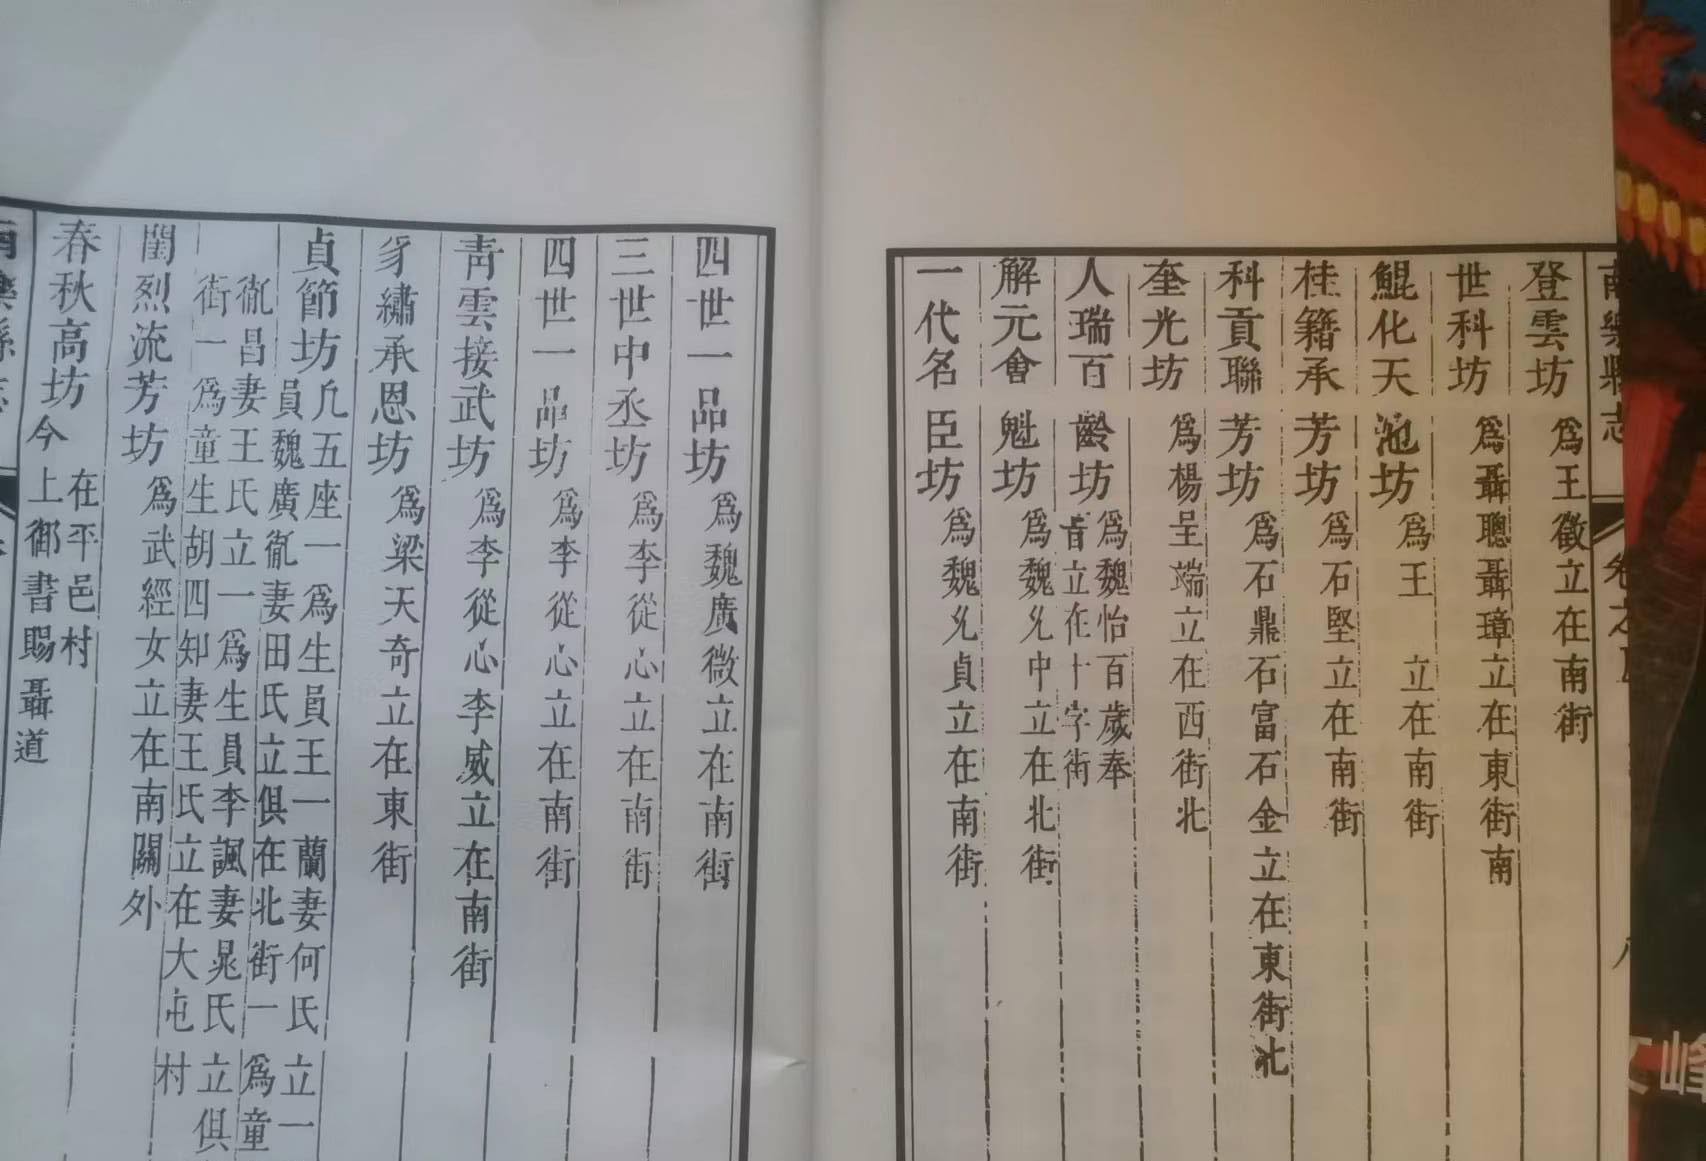 南樂縣志
卷之
登雲坊 爲王徵立在南街
世科坊 爲聶聰聶璋立在東街南
鯤化天池坊 爲王 立在南街
桂籍承芳坊 爲石堅立在南街
科貢聯芳坊 爲石鼎石富石金立在東街北
奎光坊 爲楊呈端立在西街北
人瑞百齡坊 爲魏怡百歲奉
旨立在十字街
解元會魁坊 爲魏允中立在北街
一代名臣坊 爲魏允貞立在南街
四世一品坊 爲魏廣微立在南街
三世中丞坊 爲李從心立在南街
四世一品坊 爲李從心立在南街
靑雲接武坊 爲李從心李威立在南街
豸繡承恩坊 爲梁天奇立在東街
貞節坊 凡五座一爲生員王一蘭妻何氏立一
員魏廣胤妻田氏立俱在北街一爲童
胤昌妻王氏立一爲生員李諷妻晁氏立俱
街一爲童生胡四知妻王氏立在大屯村
閨烈流芳坊 爲武經女立在南關外
春秋高坊 在平邑村
今上御書賜聶道
南樂縣志
峰